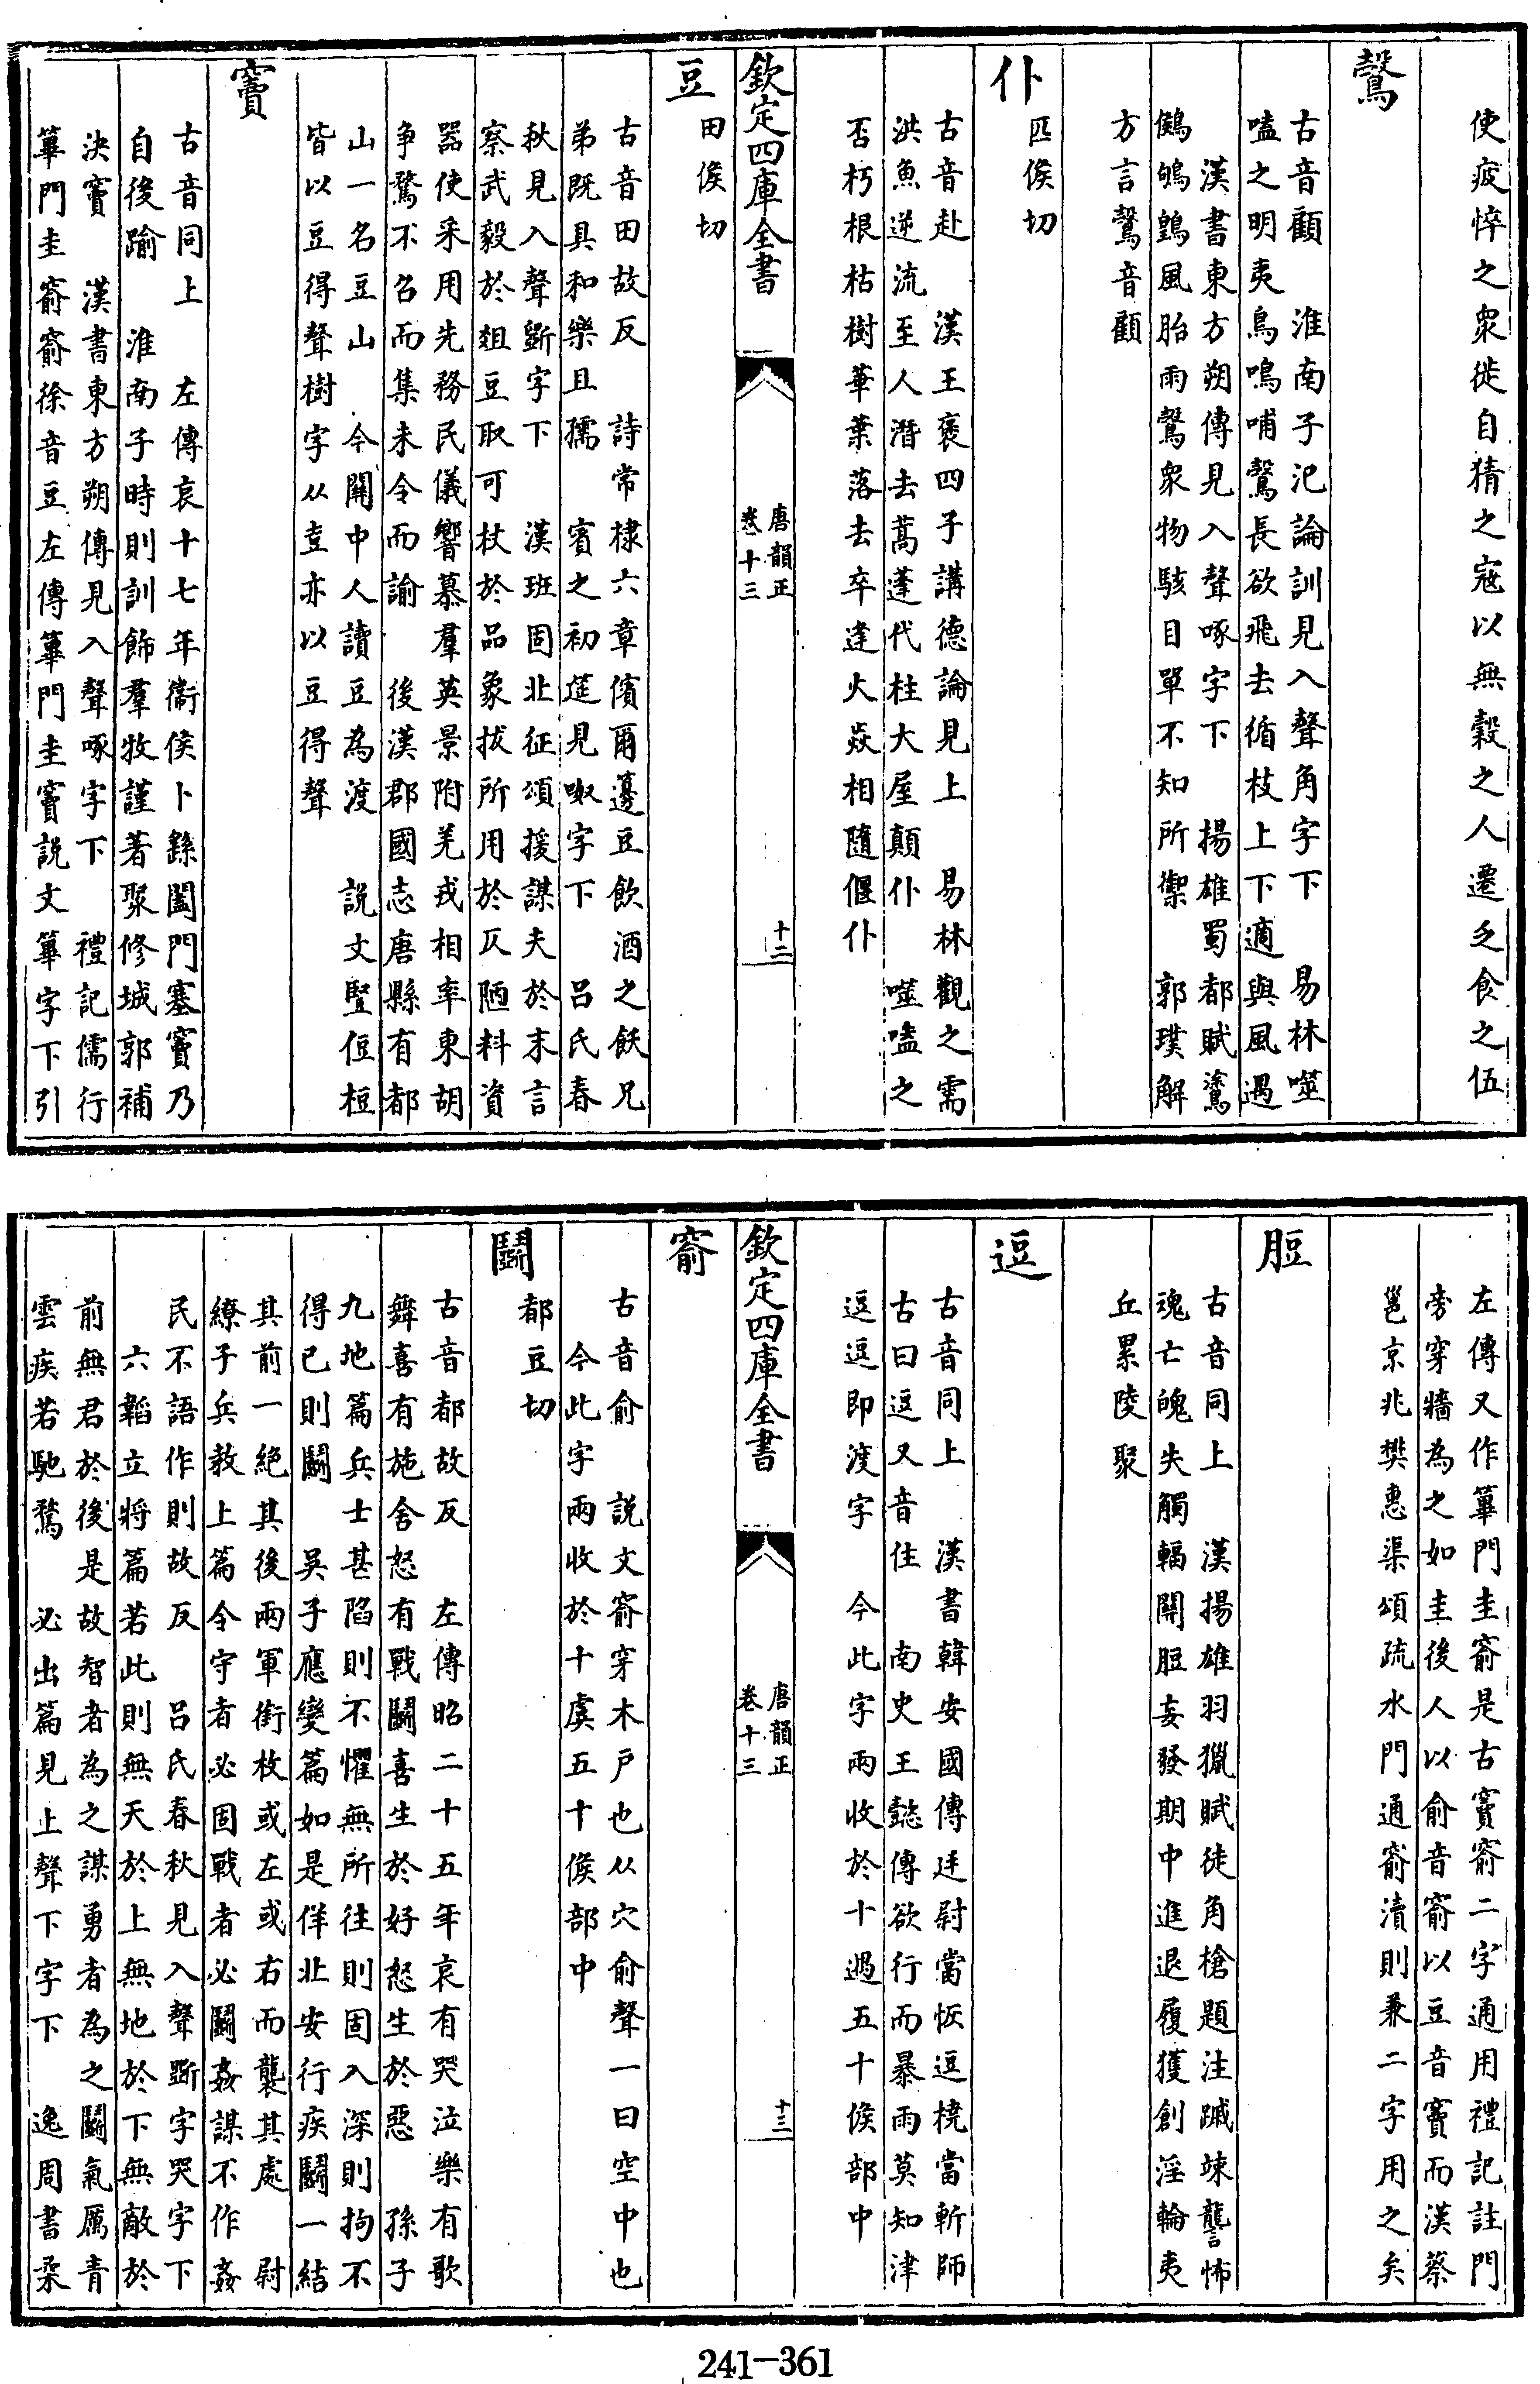 使疲悴之衆徙自猜之寇以無穀之人遷乏食之伍
鷔
古音顧　淮南子氾論訓見入聲角字下　易林噬
嗑之明夷鳥鳴哺鷔長欲飛去循枝上下適與風遇
漢書東方朔傳見入聲啄字下　揚雄蜀都賦
風胎雨鷔衆物駭目單不知所禦　郭璞解
方言鷔音顧
仆
匹候切
古音赴　漢王褒四子講德論見上　易林觀之需
洪魚逆流至人潛去蒿蓬代柱大屋顛仆　噬嗑之
否朽根枯樹華葉落去卒逢火焱相隨偃仆
欽定四庫全書
唐韻正
卷十三
十二
豆
田候切
古音田故反　詩常棣六章儐爾籩豆飲酒之飫兄
弟既具和樂且孺　賓之初筵見呶字下　呂氏春
秋見入聲斲字下　漢班固北征頌援謀夫於末言
察武毅於俎豆取可杖於品象拔所用於仄陋料資
器使采用先務民儀響慕羣英景附羌戎相率東胡
爭騖不召而集未令而諭　後漢郡國志唐縣有都
山一名豆山　今關中人讀豆為渡　說文豎侸桓
皆以豆得聲樹字从壴亦以豆得聲
竇
古音同上　左傳哀十七年衞侯卜繇闔門塞竇乃
自後踰　淮南子時則訓飾羣牧謹著聚修城郭補
決竇　漢書東方朔傳見入聲啄字下　禮記儒行
篳門圭窬窬徐音豆左傳篳門圭竇說文篳字下引
左傳又作篳門圭窬是古竇窬二字通用禮記註門
旁穿牆為之如圭後人以俞音窬以豆音竇而漢蔡
邕京兆樊惠渠頌疏水門通窬瀆則兼二字用之矣
脰
古音同上　漢揚雄羽獵賦徒角槍題注蹴竦讋怖
魂亡魄失觸輻關脰妄發期中進退履獲創淫輪夷
丘累陵聚
逗
古音同上　漢書韓安國傳廷尉當恢逗橈當斬師
古曰逗又音住　南史王懿傳欲行而暴雨莫知津
逗逗即渡字　今此字兩收於十遇五十候部中
欽定四庫全書
唐韻正
卷十三
十三
窬
古音俞　說文窬穿木戶也从穴俞聲一曰空中也
今此字兩收於十虞五十候部中
鬭
都豆切
古音都故反　左傳昭二十五年哀有哭泣樂有歌
舞喜有施舍怒有戰鬭喜生於好怒生於惡　孫子
九地篇兵士甚陷則不懼無所往則固入深則拘不
得已則鬭　吳子應變篇如是佯北安行疾鬭一結
其前一絶其後兩軍銜枚或左或右而襲其處　尉
繚子兵教上篇令守者必固戰者必鬭姦謀不作姦
民不語作則故反　呂氏春秋見入聲斲字哭字下
六韜立將篇若此則無天於上無地於下無敵於
前無君於後是故智者為之謀勇者為之鬭氣厲青
雲疾若馳騖　必出篇見上聲下字下　逸周書柔
241-361